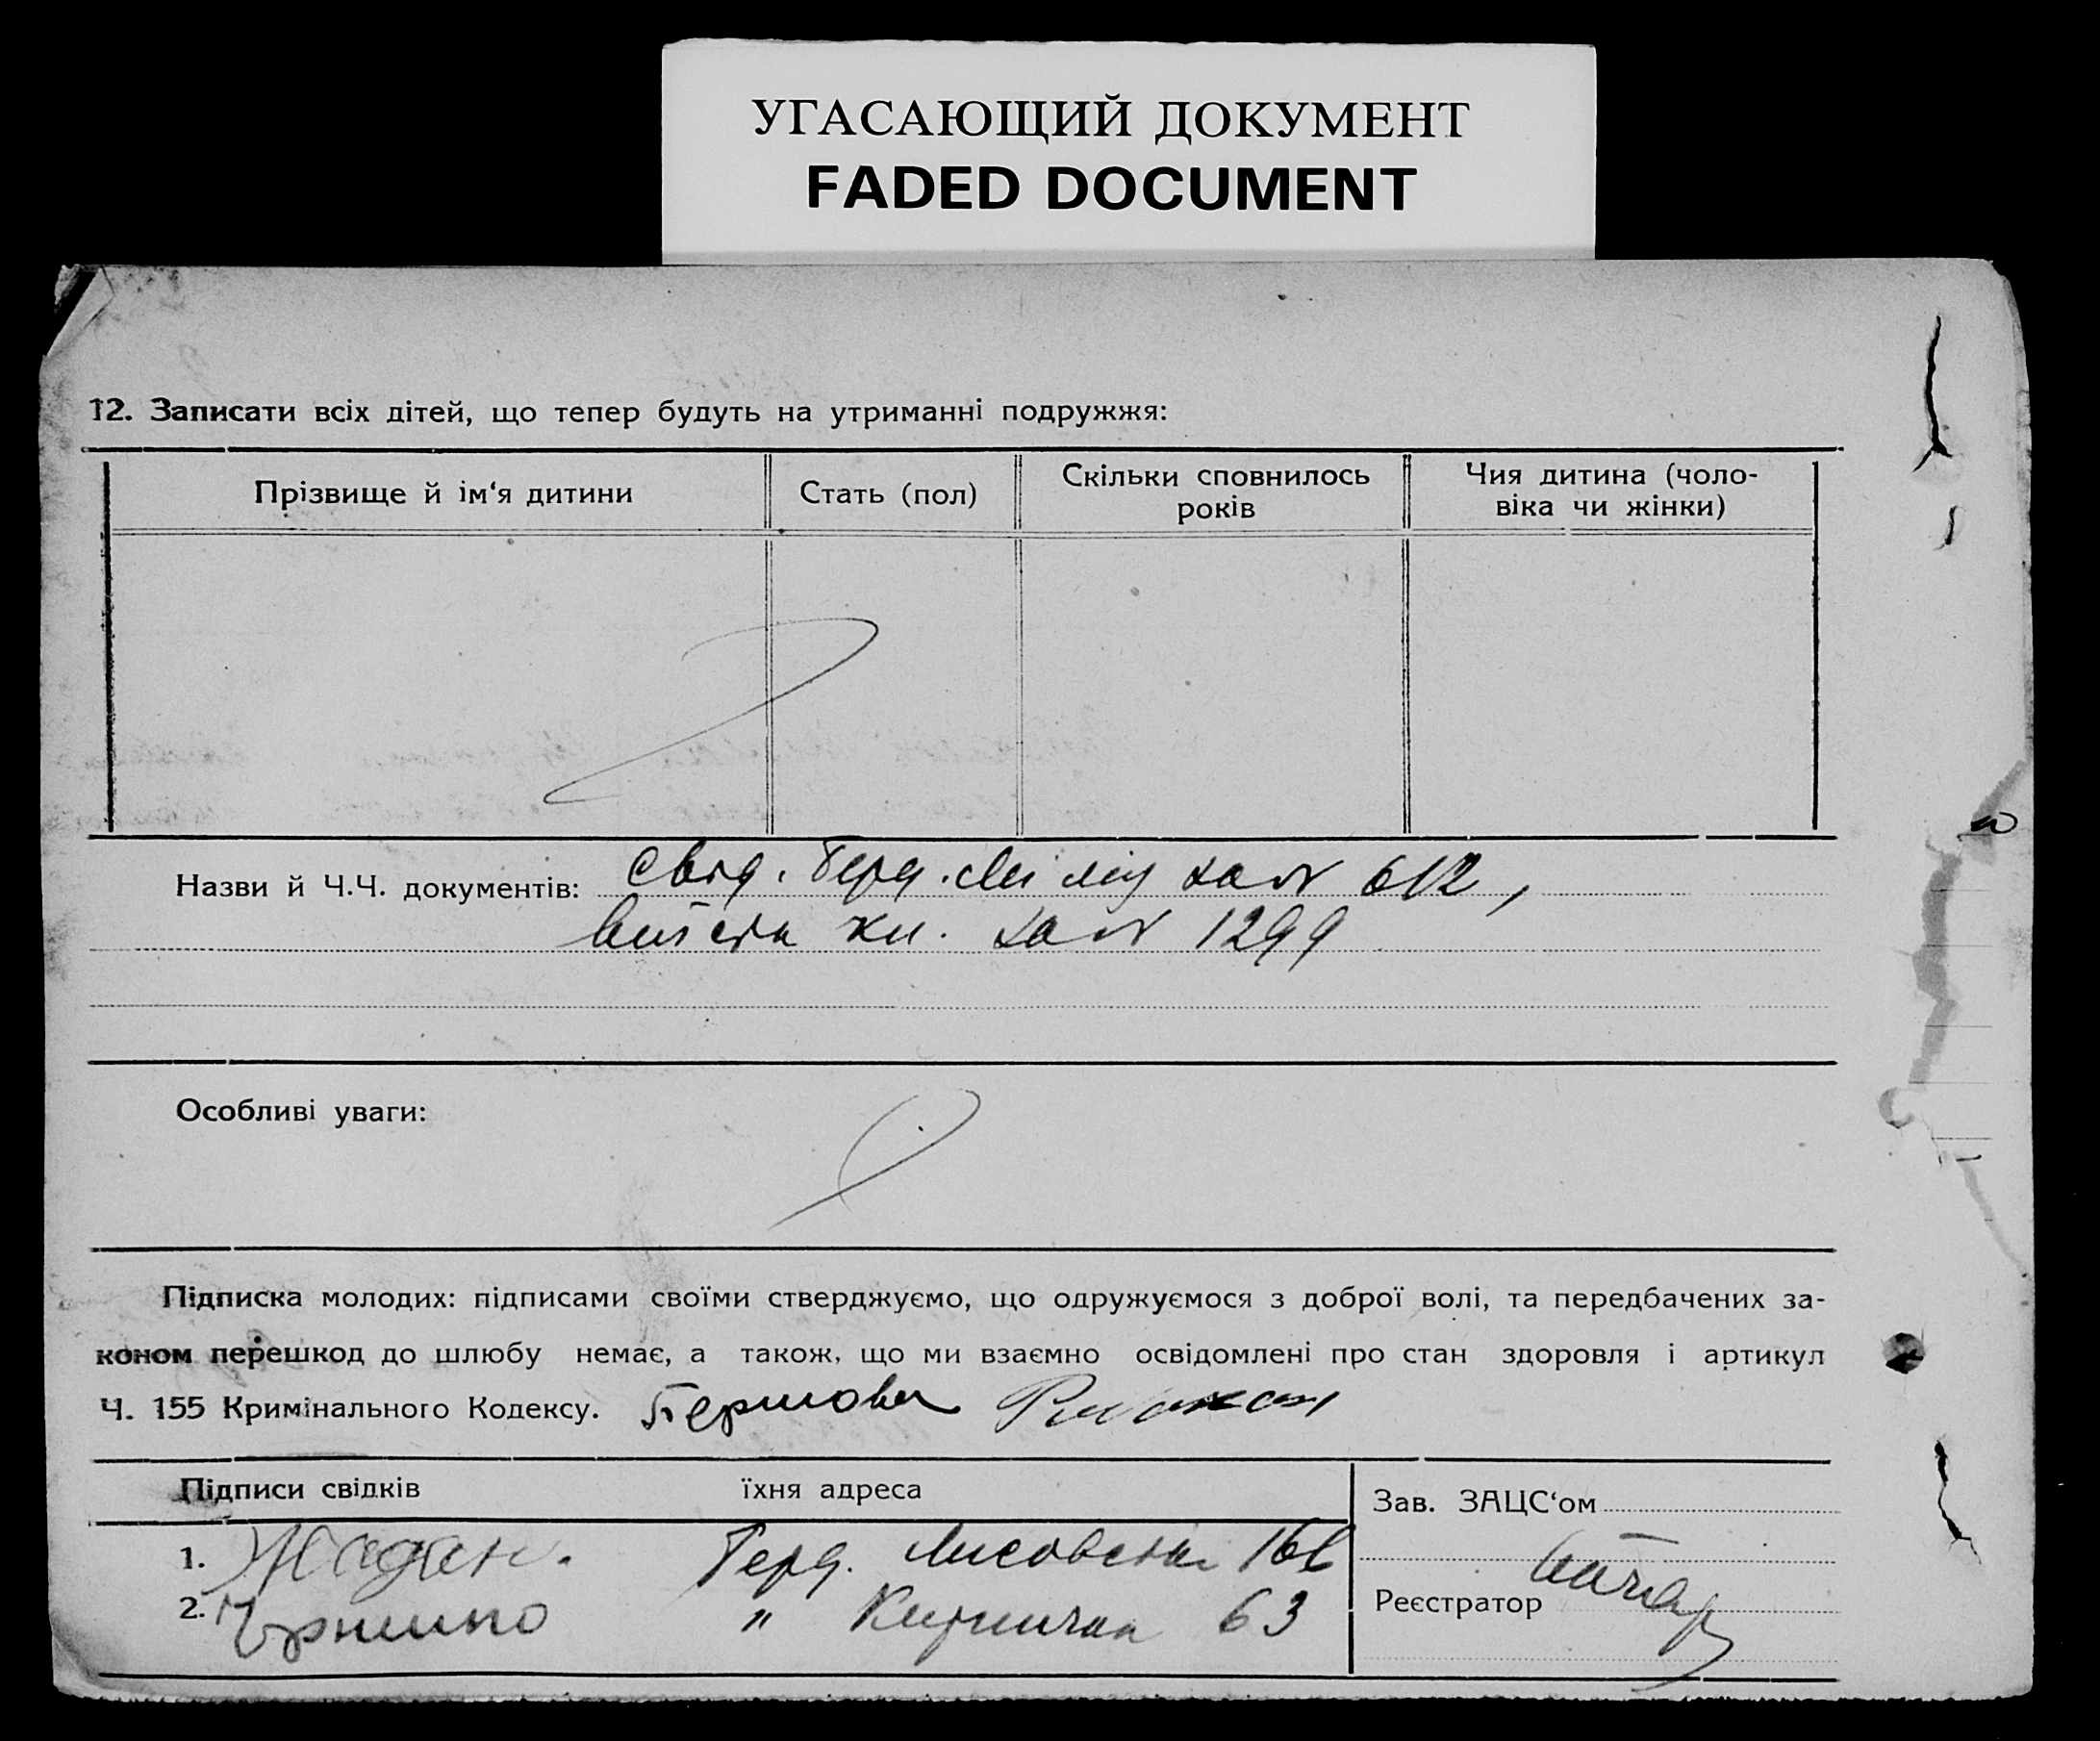 УГАСАЮЩИЙ ДОКУМЕНТ
FADED DOCUMENT
12. Записати всіх дітей, що тепер будуть на утриманні подружжя:
Прізвище й ім‘я дитини
Стать (пол)
Скільки сповнилось
років
Чия дитина (чоло-
віка чи жінки)
Назви й Ч.Ч. документів: за № 612,
кн. за № 1299
Особливі уваги:
Підписка молодих: підписами своїми стверджуємо, що одружуємося з доброї волі, та передбачених за-
коном перешкод до шлюбу немає, а також, що ми взаємно освідомлені про стан здоровля і артикул
Ч. 155 Кримінального Кодексу.
Підписи свідків їхня адреса
Зав. ЗАЦС‘ом
1. Жадан. Лисовська
2. " Кирпична 63
Реєстратор